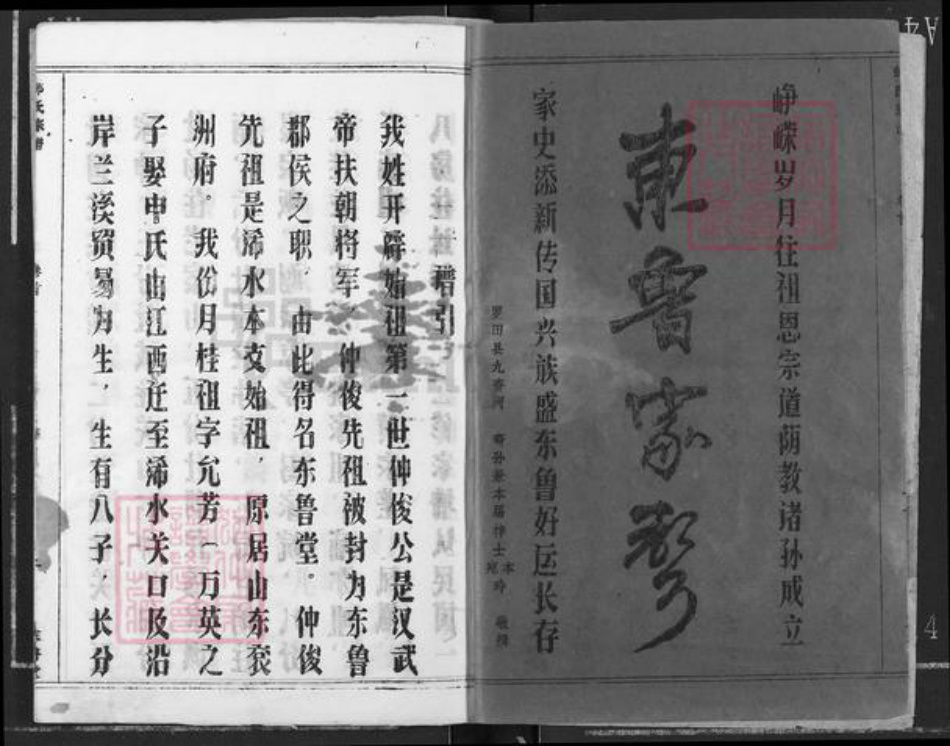 峥嵘岁月往祖恩宗道荫教诸孙成立
東魯家聲
家史添新传国兴族盛东鲁好运长存
罗田县九资河
谱引
我姓开辟始祖第一世仲俊公是汉武
帝扶朝将军，仲俊先祖被封为东鲁
郡侯之职，由此得名东鲁堂。仲俊
先祖是浠水本支始祖，原居山东兖
洲府。我份月桂祖字允芳（万英之
子娶申氏由江西迁至浠水关口及沿
岸兰溪贸易为生，生有八子，长分
A4
4